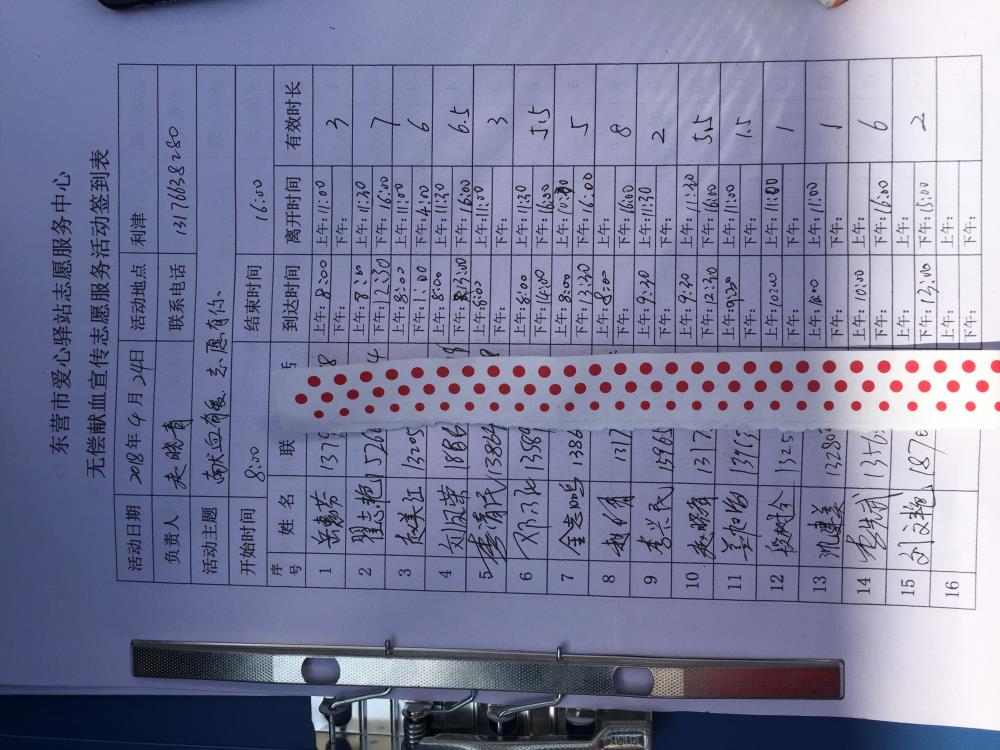 东营市爱心驿站志愿服务中心
无偿献血宣传志愿服务活动签到表
活动日期 2018年9月24日 活动地点 利津
负责人 赵晓青 联系电话 13176638280
活动主题 献血有爱 志愿有你、
开始时间 8:00 结束时间 16:00
序号 姓名 联 到达时间 离开时间 有效时长
1 岳惠芳 1379 8 上午: 8:00 下午: 上午: 11:00 下午: 3
2 翟志艳 1526 4 上午: 8:00 下午: 12:30 上午: 11:30 下午: 16:00 7
3 赵美红 13205 上午: 8:00 下午: 1:00 上午: 11:00 下午: 4:00 6
4 1866 上午: 8:00 下午: 13:00 上午: 11:30 下午: 16:00 6.5
5 李清民 13864 上午: 8:00 下午: 上午: 11:00 下午: 3
6 1389 上午: 8:00 下午: 14:00 上午: 11:30 下午: 16:00 5.5
7 1386 上午: 8:00 下午: 13:30 上午: 10:30 下午: 16:00 5
8 1317 上午: 8:00 下午: 上午: 下午: 16:00 8
9 李兴民 15965 上午: 9:30 下午: 上午: 11:30 下午: 2
10 赵晓辉 1317 上午: 9:30 下午: 12:30 上午: 11:30 下午: 16:00 5.5
11 上午: 9:30 下午: 上午: 11:00 下午: 1.5
12 段树全 1325 上午: 10:00 下午: 上午: 11:00 下午: 1
13 13280 上午: 10:00 下午: 上午: 11:00 下午: 1
14 1356 上午: 10:00 下午: 上午: 下午: 16:00 6
15 刘文艳 1870 上午: 下午: 13:00 上午: 下午: 15:00 2
16 上午: 下午: 上午: 下午: